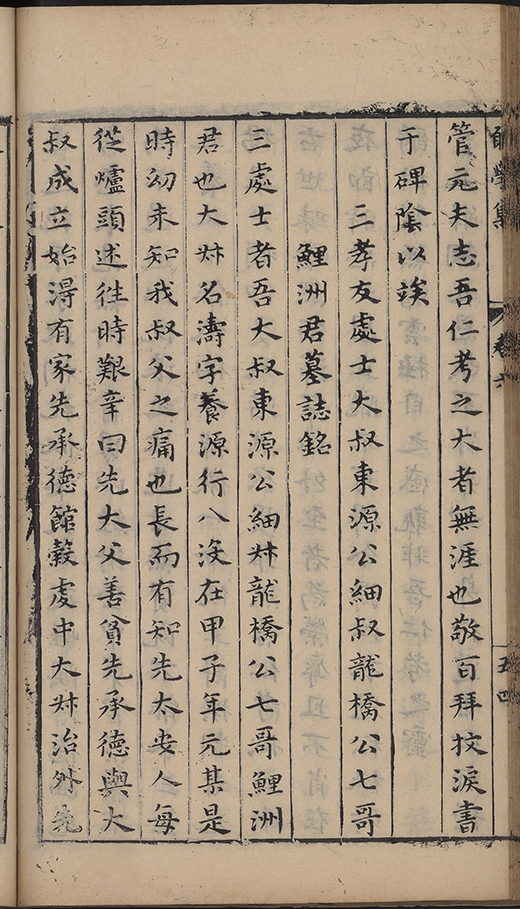 學集 卷六 五四
管元夫志吾仁考之大者無涯也敬百拜抆淚書
于碑陰以竢
三孝友處士大叔東源公細叔龍橋公七哥
鯉洲君墓誌銘
三處士者吾大叔東源公細叔龍橋公七哥鯉洲
君也大叔名濤字養源行八沒在甲子年元某是
時幼未知我叔父之痛也長而有知先太安人每
從爐頭述徃時艱辛曰先大父善貧先承德與大
叔成立始淂有家先承德館穀處中大叔治外先